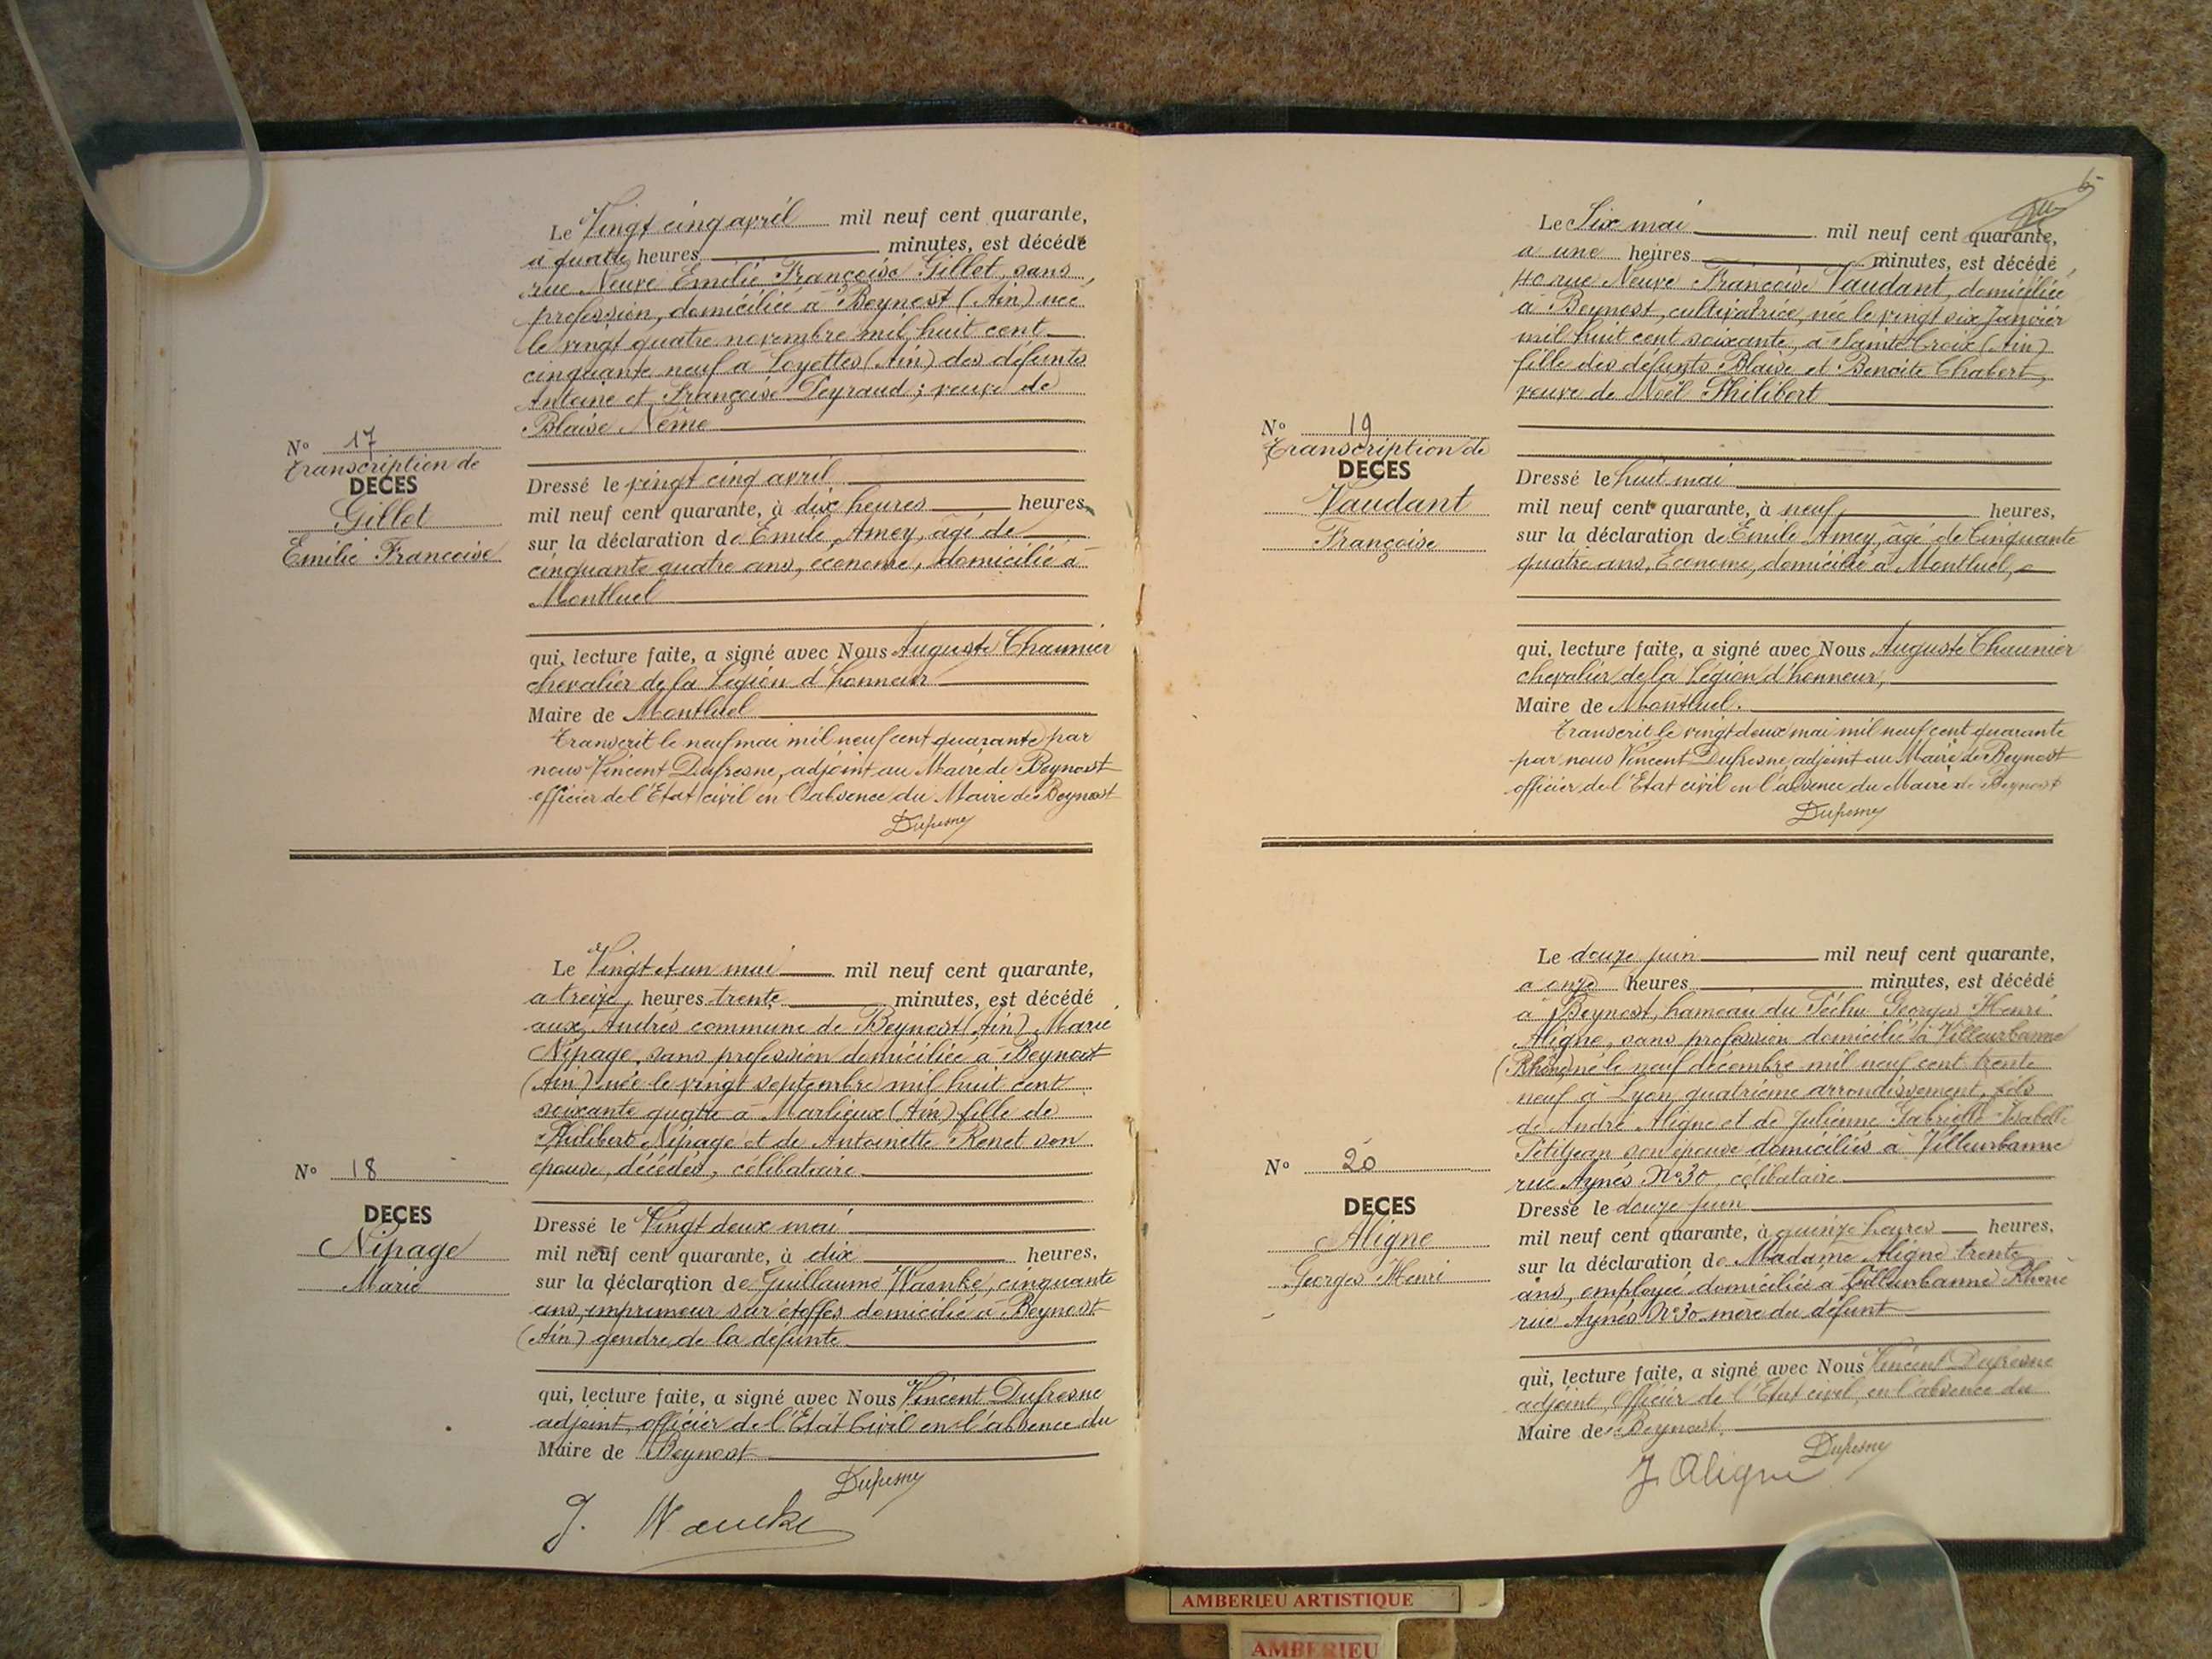 Le Vingt cinq avril mil neuf cent quarante,
à quatre heures minutes, est décédé
rue Neuve Emilie Françoise Gillet, sans
profession, domiciliée à Beynost (Ain) née
le vingt quatre novembre mil huit cent
cinquante neuf à Loyettes (Ain) des défunts
Antoine et Françoise Peyraud; veuve de
Blaise Nême
N° 17
Transcription de
DECES
Gillet
Emilie Françoise
Dressé le vingt cinq avril
mil neuf cent quarante, à dix heures heures,
sur la déclaration de Emile Amey, âgé de
cinquante quatre ans, économe, domicilié à
Montluel
qui, lecture faite, a signé avec Nous Auguste Chaunier
chevalier de la Légion d'honneur
Maire de Montluel
Transcrit le neuf mai mil neuf cent quarante par
nous Vincent Dufresne, adjoint au Maire de Beynost
officier de l'Etat civil en l'absence du Maire de Beynost
Dufresne
Le Vingt et un mai mil neuf cent quarante,
a treize heures trente minutes, est décédé
aux Andrés commune de Beynost (Ain) Marie
Nipage, sans profession domiciliée à Beynost
(Ain) née le vingt septembre mil huit cent
soixante quatre à Marlieux (Ain) fille de
Philibert Nipage et de Antoinette Renet son
épouse, décédés, célibataire
N° 18
DECES
Nipage
Marie
Dressé le Vingt deux mai
mil neuf cent quarante, à dix heures,
sur la déclaration de Guillaume Wasnke, cinquante
ans, imprimeur sur étoffes domicilié à Beynost
(Ain) gendre de la défunte
qui, lecture faite, a signé avec Nous Vincent Dufresne
adjoint, officier de l'Etat Civil en l'absence du
Maire de Beynost
Dufresne
Le Six mai mil neuf cent quarante,
a une heures minutes, est décédé
40 rue Neuve Françoise Vaudant, domiciliée
à Beynost, cultivatrice, née le vingt six Janvier
mil huit cent soixante, à Sainte Croix (Ain)
fille des défunts Blaise et Benoite Chabert,
veuve de Noël Philibert
N° 19
Transcription de
DECES
Vaudant
Françoise
Dressé le huit mai
mil neuf cent quarante, à neuf heures,
sur la déclaration de Emile Amey, âgé de Cinquante
quatre ans, Econome, domicilié à Montluel,
qui, lecture faite, a signé avec Nous Auguste Chaunier
chevalier de la Légion d'honneur,
Maire de Montluel.
Transcrit le vingt deux mai mil neuf cent quarante
par nous Vincent Dufresne adjoint au Maire de Beynost
officier de l'Etat civil en l'absence du Maire de Beynost
Dufresne
Le douze juin mil neuf cent quarante,
a onze heures minutes, est décédé
à Beynost, hameau du Péchu Georges Henri
Aligne, sans profession domicilié à Villeurbanne
(Rhône) né le neuf décembre mil neuf cent trente
neuf à Lyon quatrième arrondissement, fils
de André Aligne et de Julienne Gabrielle Isabelle
Petitjean son épouse domiciliés à Villeurbanne
rue Aynés N° 30, célibataire
N° 20
DECES
Aligne
Georges Henri
Dressé le douze juin
mil neuf cent quarante, à quinze heures heures,
sur la déclaration de Madame Aligne trente
ans, employée domiciliée à Villeurbanne Rhône
rue Aynés N° 30 mère du défunt
qui, lecture faite, a signé avec Nous Vincent Dufresne
adjoint, Officier de l'Etat civil, en l'absence du
Maire de Beynost.
Dufresne
J. Aligne
AMBERIEU ARTISTIQUE
AMBERIEU